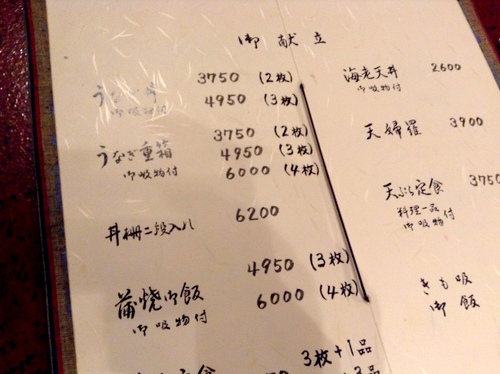 御献立
うなぎ丼 3750 (2枚)
御吸物付 4950 (3枚)
3750 (2枚)
うなぎ重箱 4950 (3枚)
御吸物付 6000 (4枚)
丼柵二段入り 6200
4950 (3枚)
蒲焼御飯 6000 (4枚)
御吸物付
3枚+1品
定食
海老天丼 2600
御吸物付
天婦羅 3900
天ぷら定食 3750
料理一品付
御吸物
きも吸
御飯